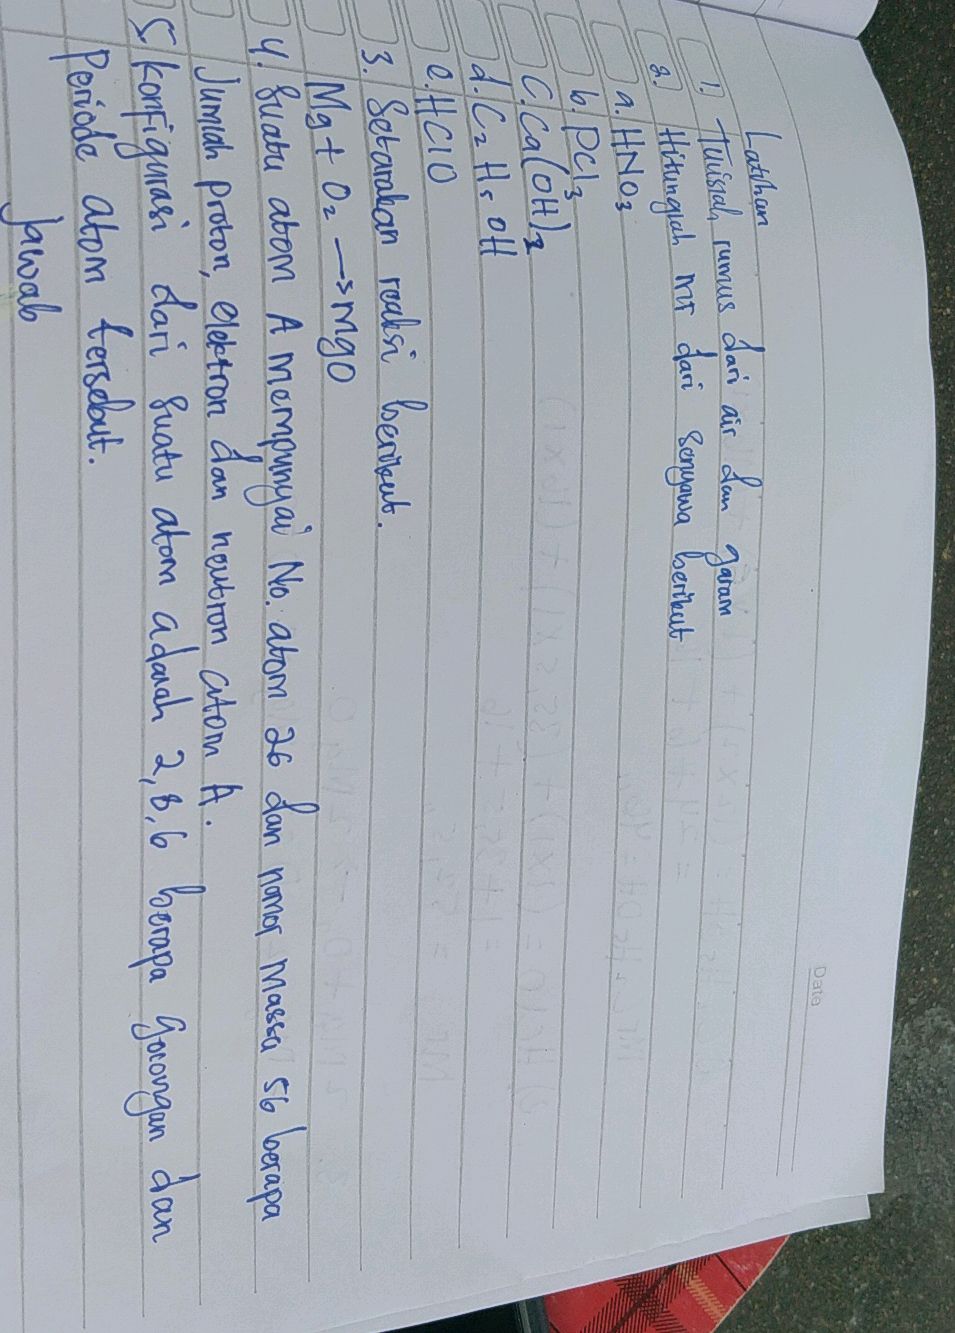 Date
Latihan
1. Tulislah rumus dari air dan garam
2. Hitunglah mr dari senyawa berikut
a. HNO₃
b. PCl₃
C. Ca(OH)₂
d. C₂H₅OH
e. HClO
3. Setarakan reaksi berikut.
Mg + O₂ → MgO
4. Suatu atom A mempunyai No. atom 26 dan nomor massa 56 berapa
Jumlah proton, elektron dan neutron atom A.
5. Konfigurasi dari suatu atom adalah 2, 8, 6 berapa golongan dan
Periode atom tersebut.
Jawab